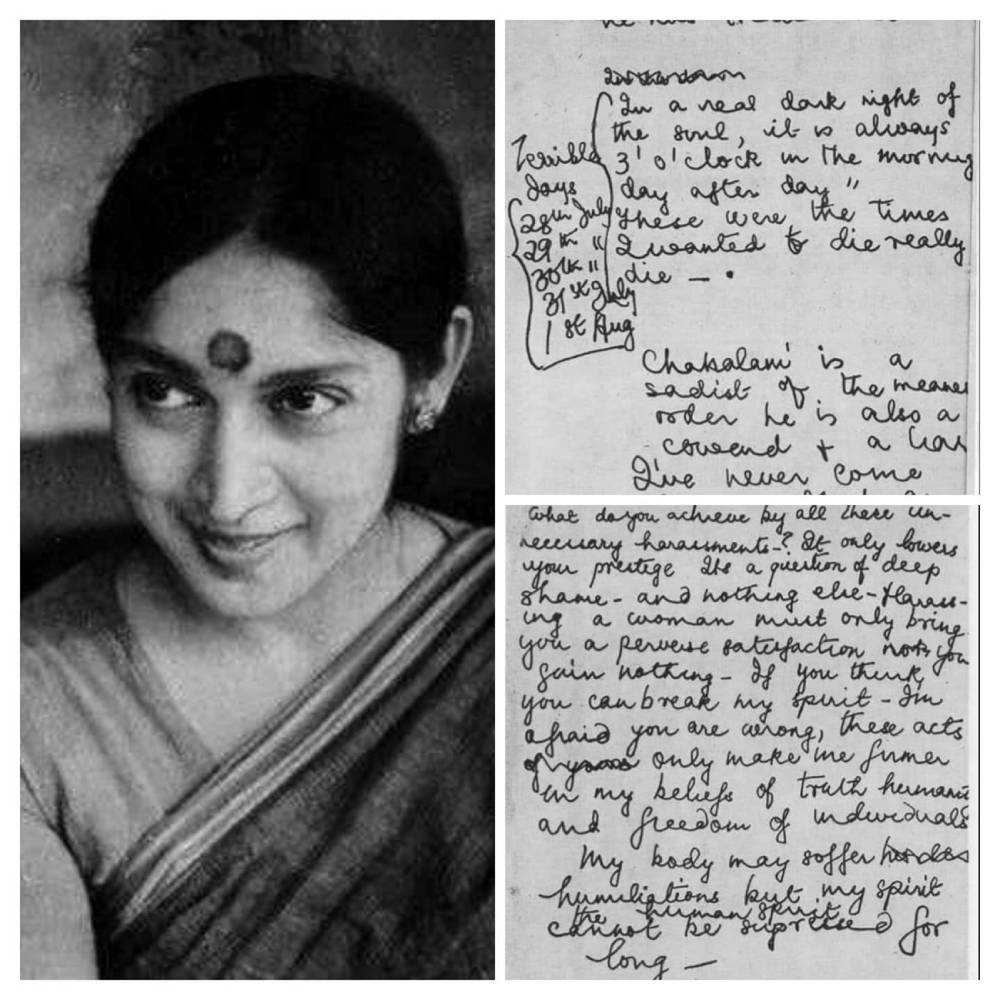 In a real dark night of
the soul, it is always
3' o'clock in the morning
day after day "
These were the times
I wanted to die really
die — .
Terrible
days
28th July
29th "
30th "
31st July
1st Aug
Chakalam' is a
sadist of the meanes
order he is also a
coward + a liar
I've never come
What do you achieve by all these un-
necessary harassments-? It only lowers
your prestige Its a question of deep
shame - and nothing else - Harass-
ing a woman must only bring
you a perverse satisfaction you
gain nothing - If you think
you can break my spirit - I'm
afraid you are wrong, these acts
only make me firmer
in my beliefs of truth
and freedom of individuals
My body may soffer
humiliations but my spirit
the human spirit
cannot be for
long —